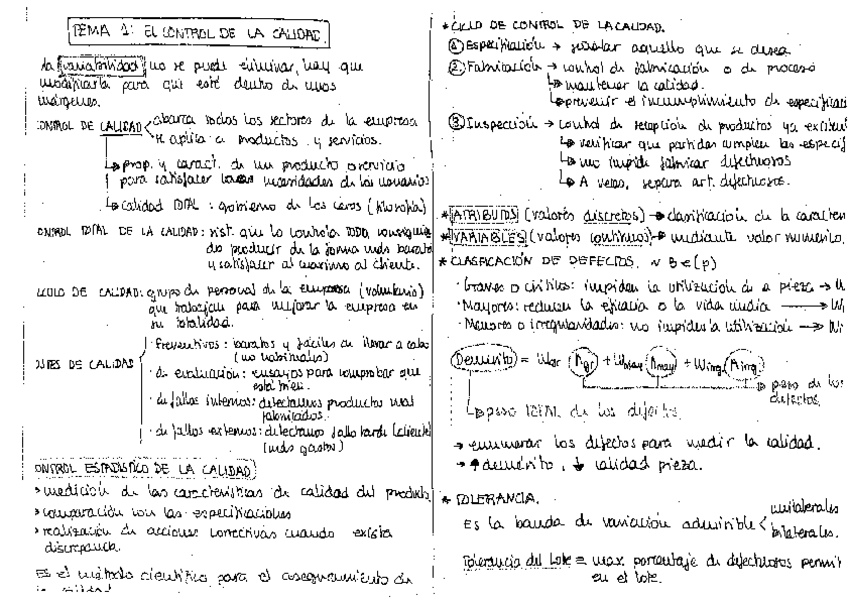 TEMA 1: EL CONTROL DE LA CALIDAD.
La variabilidad no se puede eliminar, hay que
modificarla para que esté dentro de unos
márgenes.
CONTROL DE CALIDAD abarca todos los sectores de la empresa
se aplica a productos y servicios.
prop. y caract. de un producto o servicio
para satisfacer las necesidades de los usuarios
calidad TOTAL: gobierno de los ceros (filosofía)
CONTROL TOTAL DE LA CALIDAD: sist. que lo controla TODO, consiguien
do producir de la forma más barata
y satisfacer al máximo al cliente.
CÍRCULO DE CALIDAD: grupo de personal de la empresa (voluntario)
que trabajan para mejorar la empresa en
su totalidad.
DE CALIDAD
· Preventivos: baratos y fáciles en llevar a cabo
(no habituales)
· de evaluación: ensayos para comprobar que
está bien.
· de fallos internos: detectamos productos mal
fabricados.
· de fallos externos: detectamos fallo tarde (cliente)
(más gastos)
CONTROL ESTADÍSTICO DE LA CALIDAD
> medición de las características de calidad del producto
> comparación con las especificaciones
> realización de acciones correctivas cuando exista
discrepancia.
Es el método científico para el aseguramiento de
* CICLO DE CONTROL DE LA CALIDAD.
① Especificación → señalar aquello que se desea
② Fabricación → control de fabricación o de proceso
mantener la calidad.
prevenir el incumplimiento de especificaci
③ Inspección → control de recepción de productos ya existent
verificar que partidas cumplen las especif
no impide fabricar defectuosos
A veces, separa art. defectuosos.
* ATRIBUTOS (valores discretos) → clasificación de la caracter
* VARIABLES (valores continuos) → mediante valor numérico.
* CLASIFICACIÓN DE DEFECTOS.
· Graves o críticos: impiden la utilización de la pieza →
· Mayores: reducen la eficacia o la vida media →
· Menores o irregularidades: no impiden la utilización →
Demérito = Wgr (Agr) + Wmay (Amay) + Wirrg (Airrg)
peso de los
defectos.
peso TOTAL de los defectos.
→ enumerar los defectos para medir la calidad.
→ ↑ demérito, ↓ calidad pieza.
* TOLERANCIA.
Es la banda de variación admisible unilaterales
bilaterales.
Tolerancia del Lote = max. porcentaje de defectuosos permit
en el lote.